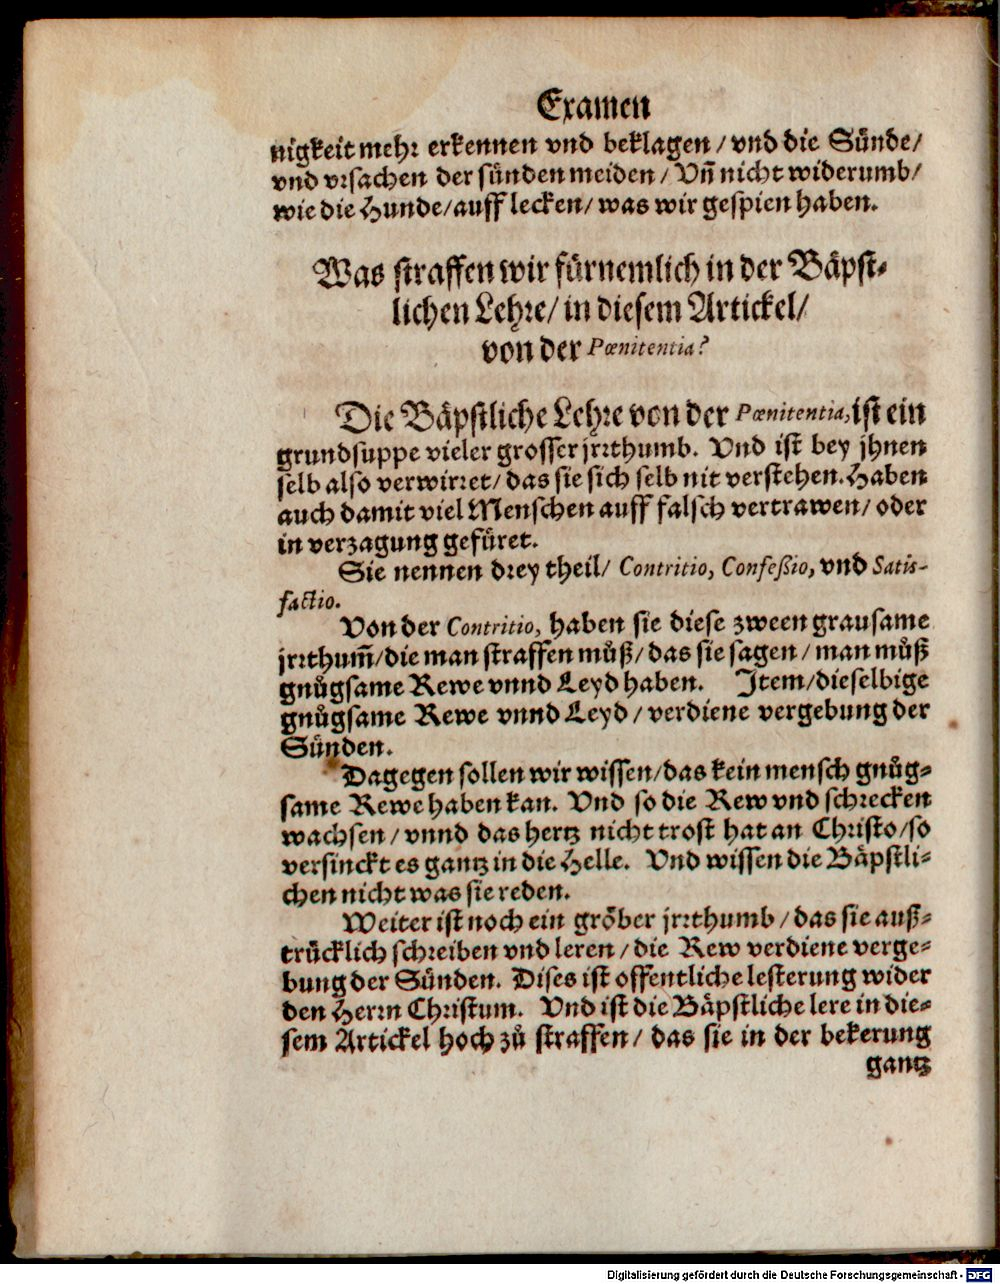 Examen
nigkeit mehr erkennen vnd beklagen / vnd die Sünde /
vnd vrsachen der sünden meiden / Vn̄ nicht widerumb /
wie die Hunde / auff lecken / was wir gespien haben.
Was straffen wir fürnemlich in der Bäpst-
lichen Lehre / in diesem Artickel /
von der Pœnitentia?
Die Bäpstliche Lehre von der Pœnitentia, ist ein
grundsuppe vieler grosser jrrthumb. Vnd ist bey jhnen
selb also verwirret / das sie sich selb nit verstehen. Haben
auch damit viel Menschen auff falsch vertrawen / oder
in verzagung gefüret.
Sie nennen drey theil / Contritio, Confeßio, vnd Satis-
factio.
Von der Contritio, haben sie diese zween grausame
jrrthum̄ / die man straffen můß / das sie sagen / man můß
gnůgsame Rewe vnnd Leyd haben. Item / dieselbige
gnůgsame Rewe vnnd Leyd / verdiene vergebung der
Sünden.
Dagegen sollen wir wissen / das kein mensch gnůg-
same Rewe haben kan. Vnd so die Rew vnd schrecken
wachsen / vnnd das hertz nicht trost hat an Christo / so
versinckt es gantz in die Helle. Vnd wissen die Bäpstli-
chen nicht was sie reden.
Weiter ist noch ein gröber jrrthumb / das sie auß-
trücklich schreiben vnd leren / die Rew verdiene verge-
bung der Sünden. Dises ist offentliche lesterung wider
den Herrn Christum. Vnd ist die Bäpstliche lere in die-
sem Artickel hoch zů straffen / das sie in der bekerung
gantz
Digitalisierung gefördert durch die Deutsche Forschungsgemeinschaft - DFG